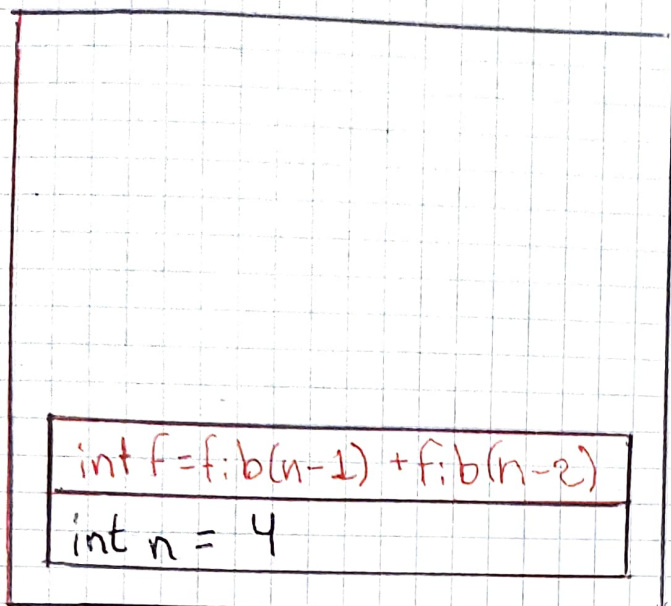 int f=fib(n-1) +fib(n-2)
int n = 4